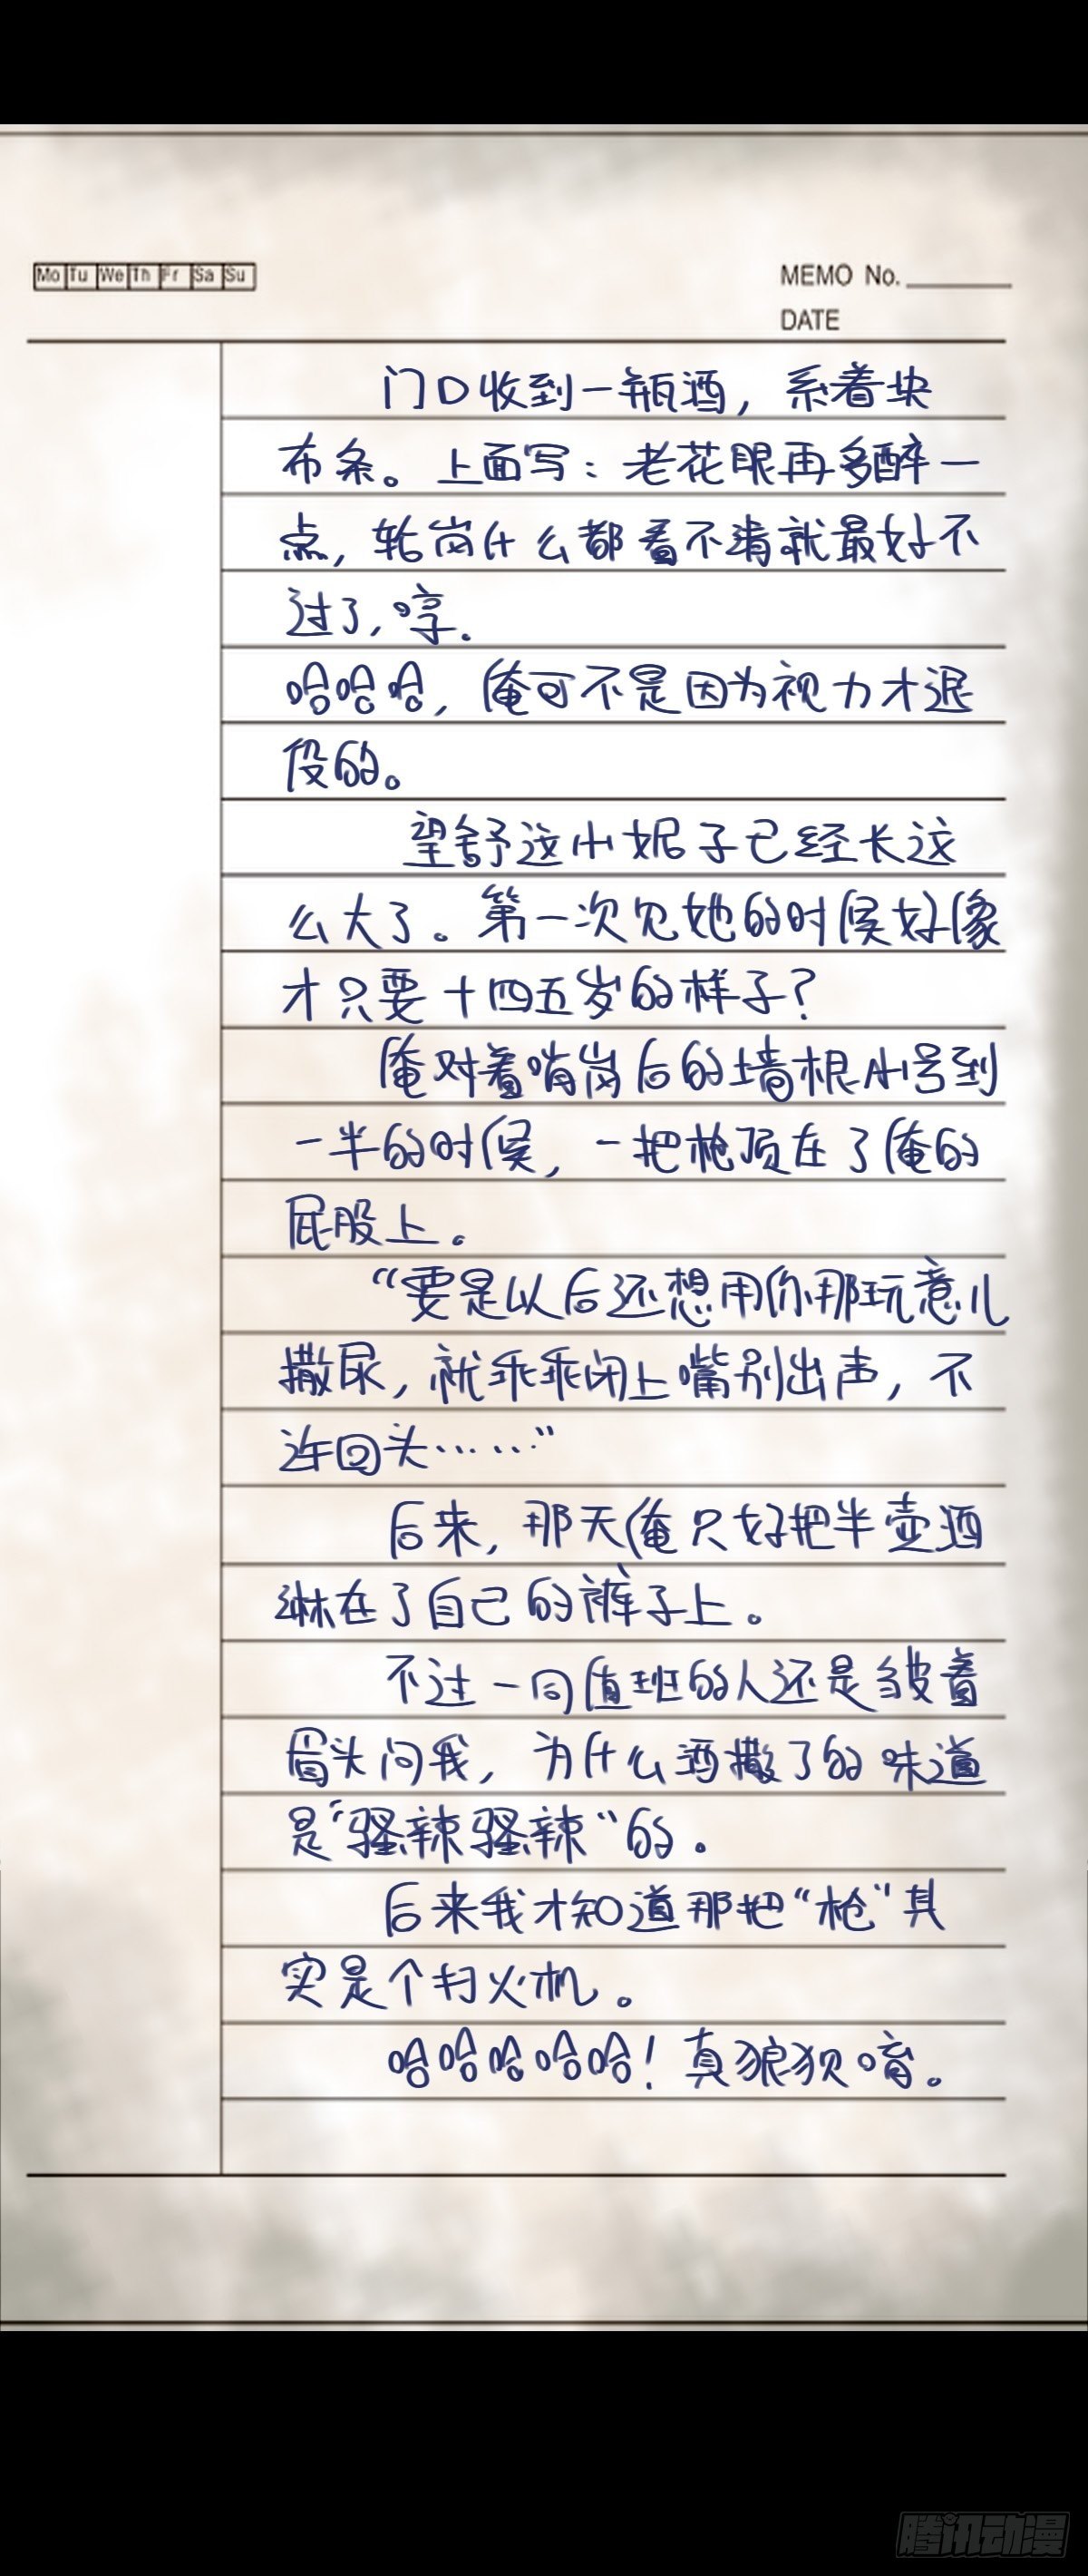 Mo Tu We Th Fr Sa Su
MEMO No.
DATE
门口收到一瓶酒，系着块
布条。上面写：老花眼再多醉一
点，轮岗什么都看不清就最好不
过了，哼.
哈哈哈，俺可不是因为视力才退
役的。
望舒这小妮子已经长这
么大了。第一次见她的时候好像
才只要十四五岁的样子？
俺对着哨岗后的墙根小号到
一半的时候，一把枪顶在了俺的
屁股上。
“要是以后还想用你那玩意儿
撒尿，就乖乖闭上嘴别出声，不
许回头……”
后来，那天俺只好把半壶酒
淋在了自己的裤子上。
不过一同值班的人还是皱着
眉头问我，为什么酒撒了的味道
是“骚辣骚辣“的。
后来我才知道那把“枪”其
实是个打火机。
哈哈哈哈哈！真狼狈唷。
腾讯动漫